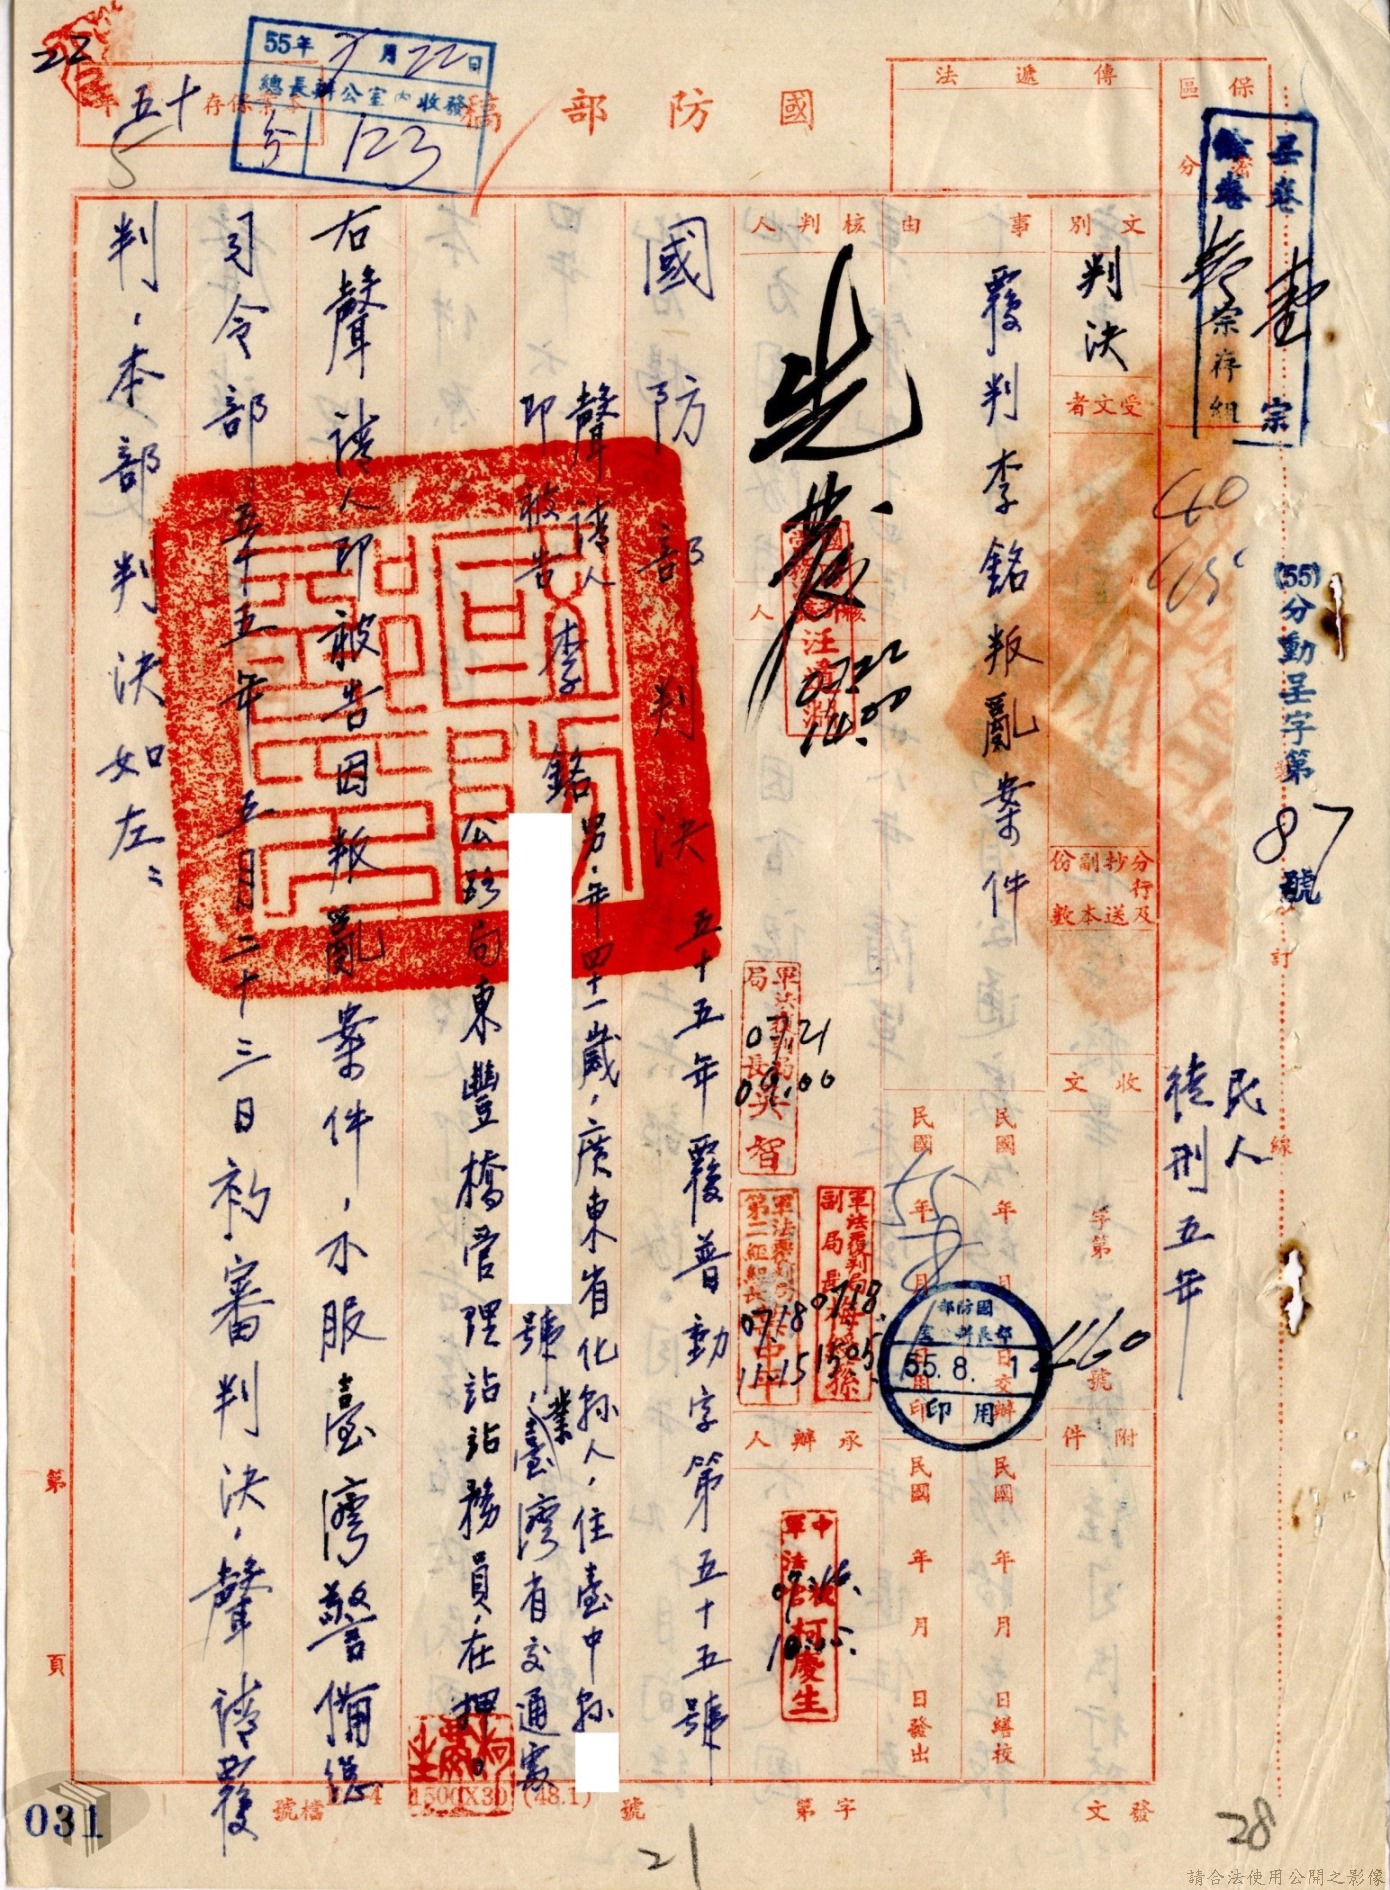 國防部稿
傳遞法
保密區分
本案保存五十年
22
55年7月22日
總長辦公室內收發
123
呈卷 宗
宗存組
(55)分動呈字第87號
訂
線
民人
徒刑五年
文別
判決
受文者
分行及抄送副本份數
收文
字第
4460
號
附件
事由
覆判李銘叛亂案件
民國 年 月 日交辦
民國 年 月 日繕校
民國 年 月 日用印
民國 年 月 日發出
國防部
55.8.1
用印
核判人
07.22
14.00
軍法覆判局局長 英智
07.21
09.00
軍法覆判局副局長
07.18.
1505.
07.18
11.15
承辦人
軍法官
柯慶生
07.16.
國防部判決 五十五年覆普動字第五十五號
聲請人
即被告
李銘
男,年四十一歲,廣東省化縣人,住臺中縣
號,業臺灣省交通處
公路局東豐橋管理站站務員,在押。
右聲請人即被告因叛亂案件,不服臺灣警備總
司令部五十五年五月二十三日初審判決,聲請覆
判,本部判決如左:
第
頁
發文
字第
號
檔號
1500X30 (48.1)
031
21
28
請合法使用公開之影像